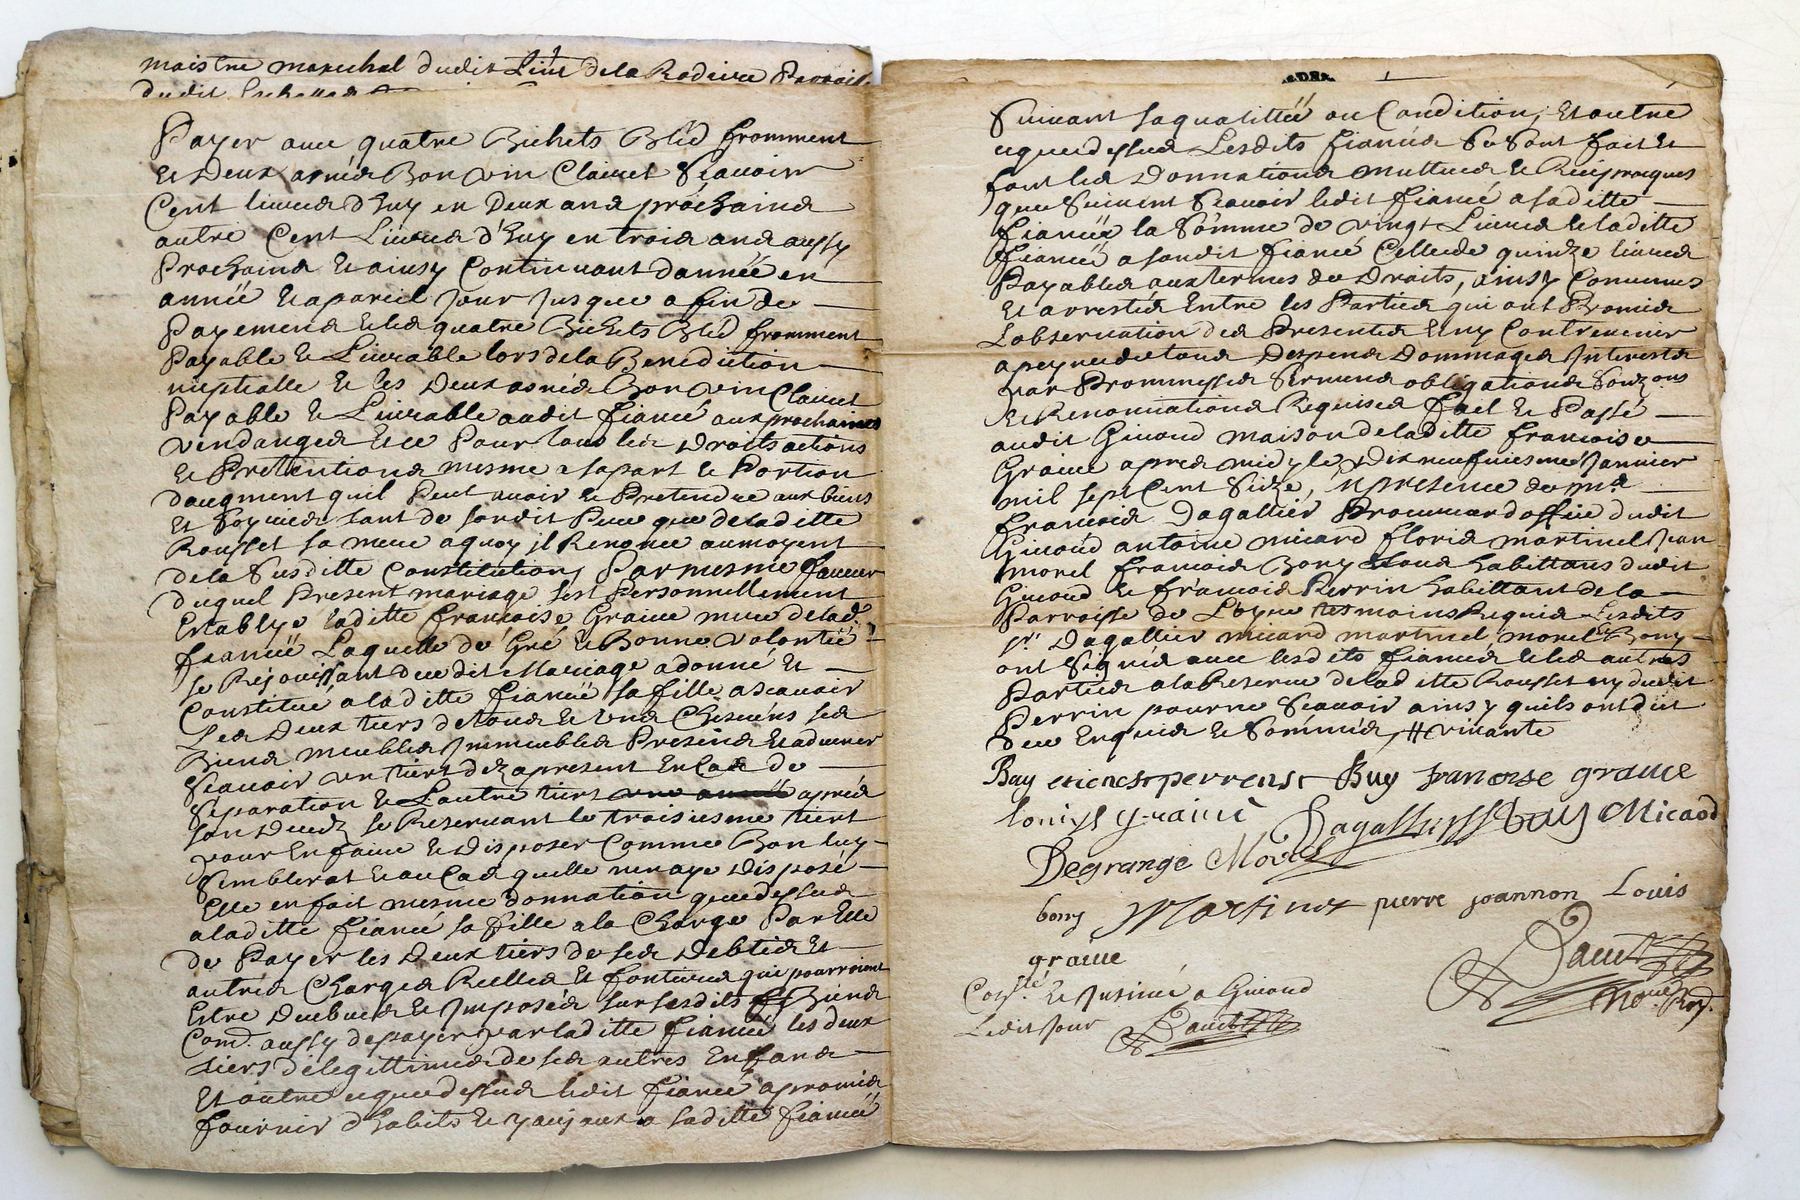 maistre marechal dudit Lieu de la Radiere Parroisse
dudit
Payer avec quatre Bichets Bléd fromment
Et Deux asnéés Bon vin Clairet Scauoir
Cent liures d'huy en Deux ans prochains
autre Cent Liures d'huy en trois ans aussy
Prochains Et ainsy Continuant d'année en
année Et apareil jour jusques a fin de
Payemens Et les quatre Bichets Bléd fromment
Payable Et Liurable lors de la Benediction
nuptialle Et les Deux asnéés Bon vin Clairet
Payable Et Liurable audit fiancé aux prochaines
vendanges Et ce Pour tous les Droits actions
Et Pretentions mesme a sa part Et Portion
daugment quil Peut auoir Et Pretendre aux biens
Et hoyries tant de sondit Pere que de laditte
Rousset sa mere aquoy il Renonce au moyent
de la Susditte Constitution, Par mesme faueur
duquel Present mariage sest Personnellement
Establye laditte françoise Graiue mere de lad.
fiancéé Laquelle de Gré Et Bonne volontéé
se Rejouissant du dit Mariage a donné Et
Constitué a laditte fiancéé sa fille ascauoir
Les Deux tiers de tous Et vns Chescuns ses
Biens meubles Jmmeubles Presens Et aduenir
Scauoir vn tiers dez apresent En Cas de
Separation Et Lautre tiers vne année apres
son Decedz se Reseruant le troisiesme tiert
pour En faire Et disposer Comme Bon luy
Semblerat Et au Cas quelle nen aye disposé
Elle en fait mesme donnation que dessus
a laditte fiancé sa fille a la Charge Par Elle
de Payer les Deux tiers de ses Debtes Et
autres Charges Reelles Et fontieres qui pourroient
Estre Deubues Et Jmposéés sur lesdits Biens
Com̃. aussy de payer par laditte fiancéé les deux
tiers de legittimes de ses autres Enfans
Et outre ce que dessus ledit fiancé a promis
fournir d'habits Et joyaux a saditte fiancéé
Suiuant sa qualittéé ou Condition, Et outre
ce que dessus Lesdits fiancés Se Sont fait Et
font les Donnations mutuelles Et Reciproques
que Suiuent Scauoir ledit fiancé a saditte
fiancéé la Sômme de vingt Liures Et laditte
fiancéé a sondit fiancé Celle de quinze liures
Payables aux termes de Droits, ainsy Conuenus
Et arrestés Entre les Parties qui ont Promis
Lobseruation des Presentes Et ny Contreuenir
a peyne de tous Despens Dommages Jnterests
par Prommesses Sermens obligations Souzmis
Et Renonciations Requises fait Et Passé
audit Giuoud maison de laditte francoise
Graiue apres midy le Dix neufuiesme Januier
mil sept Cent Seize, En presence de Mr.
francois Dagallier Procureur d'office dudit
Giuoud antoine micard floris martinel Jean
morel francois Bony tous habittans dudit
Giuoud Et francois Perrin habittant de la
Parroisse de Loyes tesmoins Requis Lesdits
Sr. Dagallier micard martinel morel Et Bony
ont Signés auec lesdits fiancés Et les autres
Parties a la Reserue de laditte Rousset ny dudit
Perrin pour ne Scauoir ainsy quils ont dit
de ce Enquis Et Sommés, # viuante
Buy françoise graiue
Louise graiue Dagallier Buy Micaod
Degrange Morel
bony Martinet pierre joannon Louis
graiue
Coñ.llé Et Jnsinué a Giuoud
Ledit Jour
Nore. Roy.